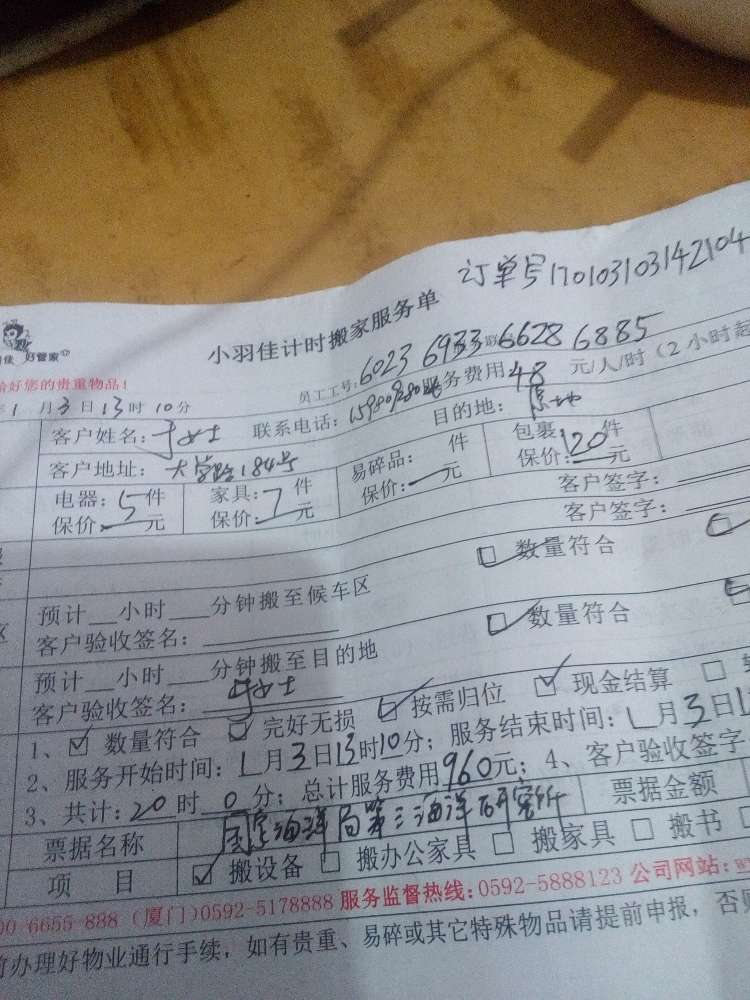 订单号170103103142104
好管家
小羽佳计时搬家服务单
好您的贵重物品!
员工工号:6023 6933 6628 6885
1月3日13时10分
联系电话: 服务费用48元/人/时(2小时起
客户姓名:于女士 目的地:原地
客户地址:大学路184号
电器:5件 家具:7件 易碎品: 件 包裹:120件
保价:一元 保价:一元 保价:一元 保价:一元
客户签字:
客户签字:
数量符合
预计__小时___分钟搬至候车区
客户验收签名:
数量符合
预计__小时___分钟搬至目的地
客户验收签名:于女士
1、☑数量符合 ☑完好无损 ☑按需归位 ☑现金结算
2、服务开始时间:1月3日13时10分;服务结束时间:1月3日1
3、共计:20时0分;总计服务费用960元;4、客户验收签字
票据名称 国家海洋局第三海洋研究所 票据金额
项 目 ☑搬设备 □搬办公家具 □搬家具 □搬书 □
00-6655-888 (厦门)0592-5178888 服务监督热线:0592-5888123 公司网站:w
前办理好物业通行手续,如有贵重、易碎或其它特殊物品请提前申报,否则